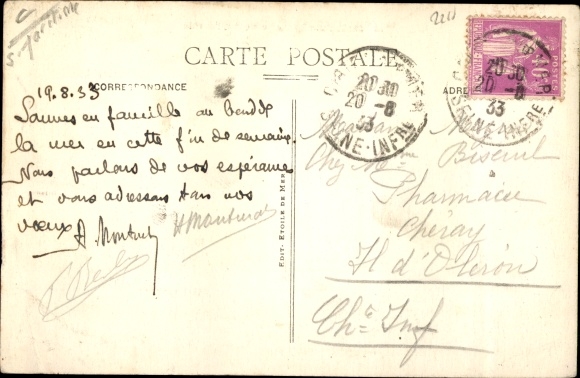 S. Maritime
2211
CARTE POSTALE
CORRESPONDANCE
ADRE
19.8.33
Sommes en famille au bord de
la mer en cette fin de semaine.
Nous parlons de vos espérances
et vous adressons tous nos
vœux
A. Montuch
H Montuch
EDIT - ETOILE DE MER
20 30
20 -8
33
SEINE-INFRE
POSTES
20 30
20 -8
33
SEINE-INFRE
Chez
Biscuit
Pharmacie
Chéray
Il d'Oléron
Chte Inf